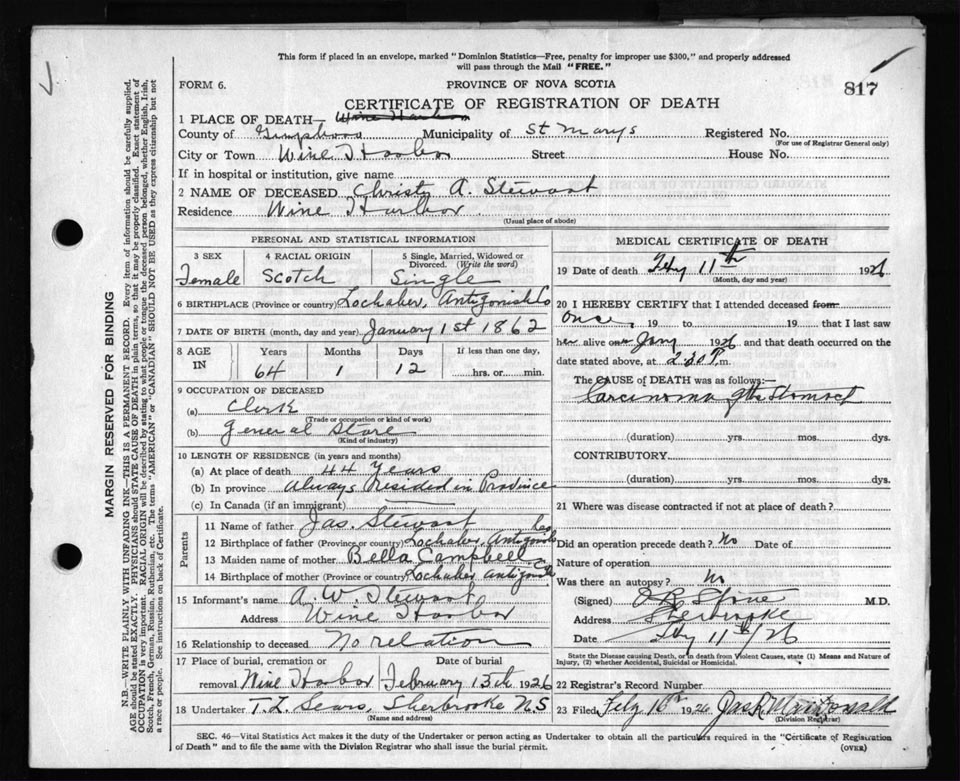 This form if placed in an envelope, marked "Dominion Statistics—Free, penalty for improper use $300," and properly addressed
will pass through the Mail "FREE."
FORM 6.
PROVINCE OF NOVA SCOTIA
817
CERTIFICATE OF REGISTRATION OF DEATH
1 PLACE OF DEATH— Wine Harbor
County of Municipality of St Marys Registered No.
(For use of Registrar General only)
City or Town Wine Harbor Street House No.
If in hospital or institution, give name
2 NAME OF DECEASED Christy A. Stewart
Residence Wine Harbor
(Usual place of abode)
PERSONAL AND STATISTICAL INFORMATION
3 SEX 4 RACIAL ORIGIN 5 Single, Married, Widowed or
Divorced. (Write the word)
Female Scotch Single
6 BIRTHPLACE (Province or country) Lochaber, Antigonish Co
7 DATE OF BIRTH (month, day and year) January 1st 1862
8 AGE IN Years Months Days If less than one day,
64 1 12 hrs. or min.
9 OCCUPATION OF DECEASED
(a) Clerk
(Trade or occupation or kind of work)
(b) General Store
(Kind of industry)
10 LENGTH OF RESIDENCE (in years and months)
(a) At place of death 44 Years
(b) In province Always Resided in Province
(c) In Canada (if an immigrant)
Parents
11 Name of father Jas. Stewart
12 Birthplace of father (Province or country) Lochaber, Antigonish
13 Maiden name of mother Bella Campbell Co
14 Birthplace of mother (Province or country) Lochaber Antigonish
15 Informant's name A. W. Stewart
Address Wine Harbor
16 Relationship to deceased No relation
17 Place of burial, cremation or Date of burial
removal Wine Harbor February 13th 1926
18 Undertaker T. L. Sears, Sherbrooke NS
(Name and address)
MEDICAL CERTIFICATE OF DEATH
19 Date of death Feby 11th 1926
(Month, day and year)
20 I HEREBY CERTIFY that I attended deceased from
once, 19 to 19 that I last saw
her alive on Jany 1926 and that death occurred on the
date stated above, at 2.30 P.m.
The CAUSE OF DEATH was as follows:—
Carcinoma of the Stomach
(duration) yrs. mos. dys.
CONTRIBUTORY
(duration) yrs. mos. dys.
21 Where was disease contracted if not at place of death?
Did an operation precede death? No Date of
Nature of operation
Was there an autopsy? No
(Signed) M.D.
Address Sherbrooke
Date Feby 11th/26
State the Disease causing Death, or in death from Violent Causes, state (1) Means and Nature of
Injury, (2) whether Accidental, Suicidal or Homicidal.
22 Registrar's Record Number
23 Filed Feby 16th 1926 Jas R MacDonald
(Division Registrar)
SEC. 46—Vital Statistics Act makes it the duty of the Undertaker or person acting as Undertaker to obtain all the particulars required in the "Certificate of Registration
of Death" and to file the same with the Division Registrar who shall issue the burial permit.
(OVER)
MARGIN RESERVED FOR BINDING
N.B.—WRITE PLAINLY WITH UNFADING INK—THIS IS A PERMANENT RECORD. Every item of information should be carefully supplied.
AGE should be stated EXACTLY. PHYSICIANS should STATE CAUSE OF DEATH in plain terms, so that it may be properly classified. Exact statement of
OCCUPATION is very important. RACIAL ORIGIN will be described by stating to what people or tongue the deceased person belonged, whether English, Irish,
Scotch, French, German, Russian, Ruthenian, etc. The terms "AMERICAN" or "CANADIAN" SHOULD NOT BE USED as they express citizenship but not
a race or people. See instructions on back of Certificate.